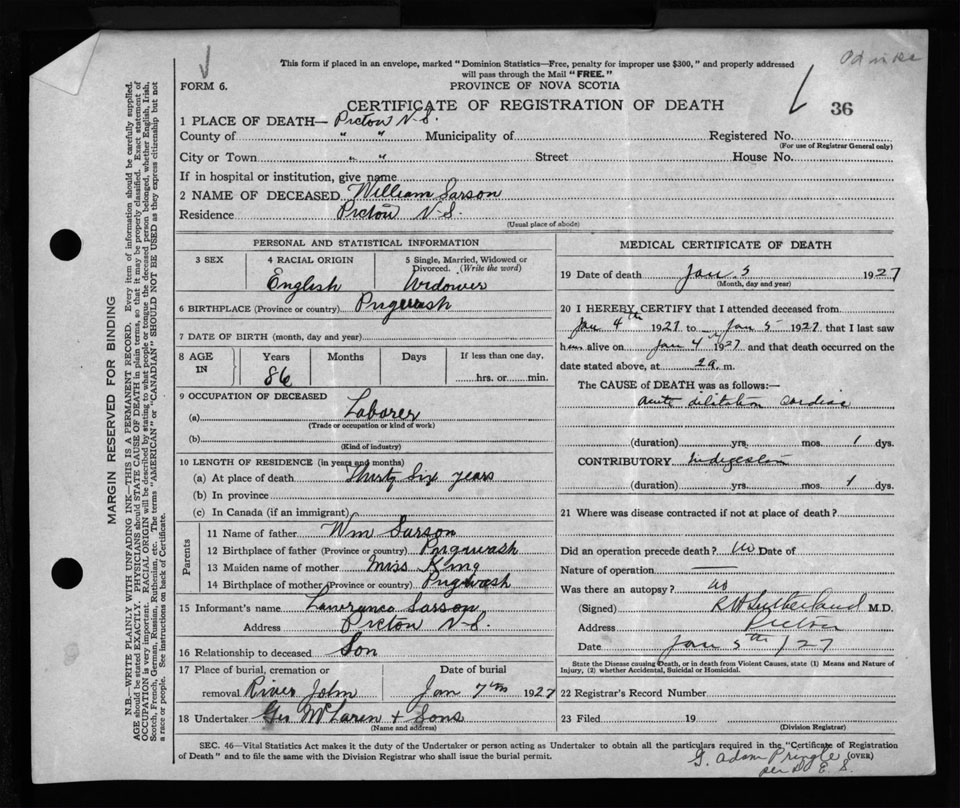 This form if placed in an envelope, marked "Dominion Statistics—Free, penalty for improper use $300," and properly addressed
will pass through the Mail "FREE."
FORM 6.
PROVINCE OF NOVA SCOTIA
CERTIFICATE OF REGISTRATION OF DEATH
36
1 PLACE OF DEATH— Pictou N.S.
County of " " Municipality of Registered No.
(For use of Registrar General only)
City or Town " " Street House No.
If in hospital or institution, give name
2 NAME OF DECEASED William Sarson
Residence Pictou N.S.
(Usual place of abode)
PERSONAL AND STATISTICAL INFORMATION
3 SEX 4 RACIAL ORIGIN 5 Single, Married, Widowed or Divorced. (Write the word)
English Widower
6 BIRTHPLACE (Province or country) Pugwash
7 DATE OF BIRTH (month, day and year)
8 AGE IN Years Months Days If less than one day,
86 hrs. or min.
9 OCCUPATION OF DECEASED
(a) Laborer
(Trade or occupation or kind of work)
(b)
(Kind of industry)
10 LENGTH OF RESIDENCE (in years and months)
(a) At place of death Thirty Six years
(b) In province
(c) In Canada (if an immigrant)
Parents
11 Name of father Wm Sarson
12 Birthplace of father (Province or country) Pugwash
13 Maiden name of mother Miss King
14 Birthplace of mother (Province or country) Pugwash
15 Informant's name Sarson
Address Pictou N.S.
16 Relationship to deceased Son
17 Place of burial, cremation or Date of burial
removal River John Jan 7th 1927
18 Undertaker Geo McLaren & Sons
(Name and address)
MEDICAL CERTIFICATE OF DEATH
19 Date of death Jan 5 1927
(Month, day and year)
20 I HEREBY CERTIFY that I attended deceased from
Jan 4th 1927 to Jan 5 1927 that I last saw
him alive on Jan 4th 1927 and that death occurred on the
date stated above, at 2 a. m.
The CAUSE of DEATH was as follows:—
acute dilitation cardiac
(duration) yrs. mos. 1 dys.
CONTRIBUTORY Indigestion
(duration) yrs. mos. 1 dys.
21 Where was disease contracted if not at place of death?
Did an operation precede death? no Date of
Nature of operation —
Was there an autopsy? no
(Signed) R H Sutherland M.D.
Address Pictou
Date Jan 5th /27
State the Disease causing Death, or in death from Violent Causes, state (1) Means and Nature of
Injury, (2) whether Accidental, Suicidal or Homicidal.
22 Registrar's Record Number
23 Filed 19
(Division Registrar)
SEC. 46—Vital Statistics Act makes it the duty of the Undertaker or person acting as Undertaker to obtain all the particulars required in the "Certificate of Registration
of Death" and to file the same with the Division Registrar who shall issue the burial permit.
(OVER)
G. Adam Pringle
per D. E. S.
MARGIN RESERVED FOR BINDING
N.B.—WRITE PLAINLY WITH UNFADING INK—THIS IS A PERMANENT RECORD. Every item of information should be carefully supplied.
AGE should be stated EXACTLY. PHYSICIANS should STATE CAUSE OF DEATH in plain terms, so that it may be properly classified. Exact statement of
OCCUPATION is very important. RACIAL ORIGIN will be described by stating to what people or tongue the deceased person belonged, whether English, Irish,
Scotch, French, German, Russian, Ruthenian, etc. The terms "AMERICAN" or "CANADIAN" SHOULD NOT BE USED as they express citizenship but not
a race or people. See instructions on back of Certificate.